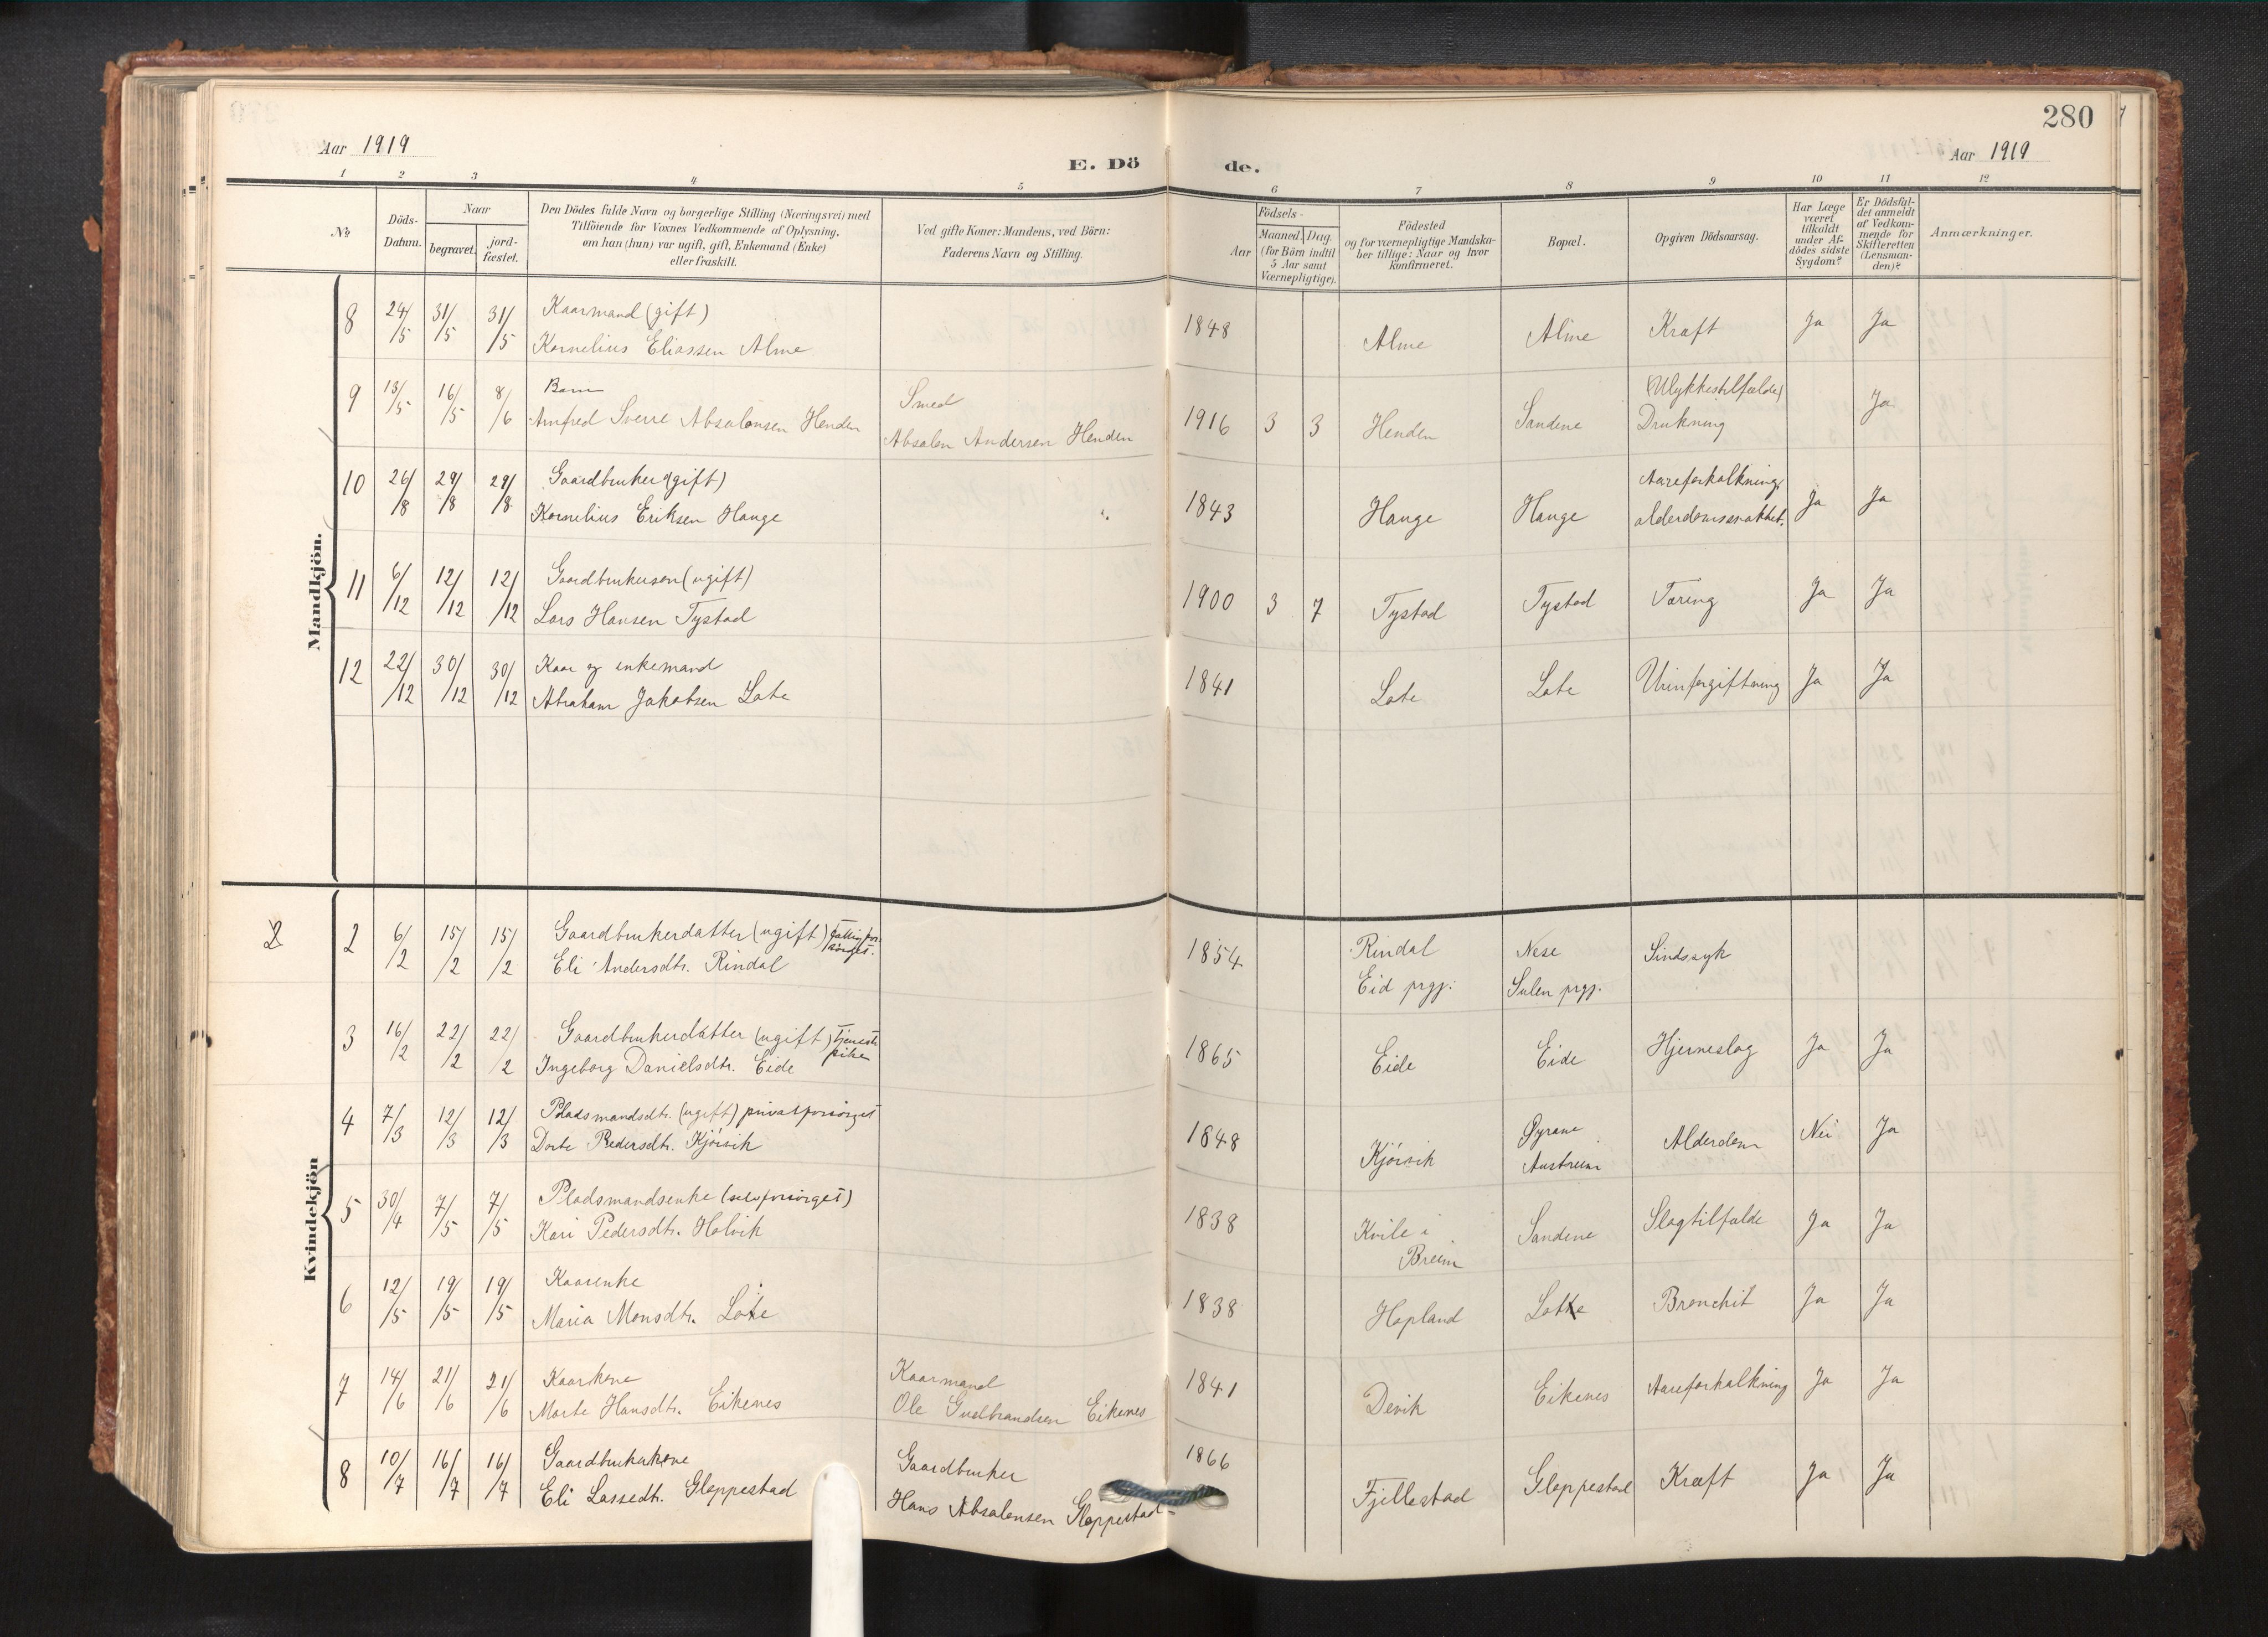 280
Aar 1919
E. Dö de.
Aar 1919
1 2 3 4 5 6 7 8 9 10 11 12
№
Döds-Datum.
Naar
begravet.
jord-fæstet.
Den Dödes fulde Navn og borgerlige Stilling (Næringsvei) med
Tilföiende for Voxnes Vedkommende af Oplysning,
om han (hun) var ugift, gift, Enkemand (Enke)
eller fraskilt.
Ved gifte Koner: Mandens, ved Börn:
Faderens Navn og Stilling.
Födsels-
Aar
Maaned. Dag.
(for Börn indtil
5 Aar samt
Værnepligtige).
Födested
og for værnepligtige Mandska-
ber tillige: Naar og hvor
konfirmeret.
Bopæl.
Opgiven Dödsaarsag.
Har Læge
været
tilkaldt
under Af-
dödes sidste
Sygdom?
Er Dödsfal-
det anmeldt
af Vedkom-
mende for
Skifteretten
(Lensman-
den)?
Anmærkninger.
Mandkjön.
8 24/5 31/5 31/5 Kaarmand (gift)
Kornelius Eliassen Alme 1848 Alme Alme Kræft Ja Ja
9 13/5 16/5 8/6 Barn
Arnfred Sverre Absalonsen Henden
Smed
Absalon Andersen Henden 1916 3 3 Henden Sandene
(Ulykkestilfælde)
Drukning Ja
10 26/8 29/8 29/8 Gaardbruker (gift)
Kornelius Eriksen Hauge 1843 Hauge Hauge
Aareforkalkning,
alderdomssvakhet. Ja Ja
11 6/12 12/12 12/12 Gaardbrukersøn (ugift)
Lars Hansen Tystad 1900 3 7 Tystad Tystad Tæring Ja Ja
12 22/12 30/12 30/12 Kaar og enkemand
Abraham Jakobsen Lote 1841 Lote Lote Urinforgiftning Ja Ja
Kvindekjön
2
2 6/2 15/2 15/2 Gaardbrukerdatter (ugift) fattigfor-
sørget.
Eli Andersdtr. Rindal 1854 Rindal
Eid prgj. Nese
Sulen prgj. Sindssyk
3 16/2 22/2 22/2 Gaardbrukerdatter (ugift) tjeneste
piken
Ingeborg Danielsdtr. Eide 1865 Eide Eide Hjerneslag Ja Ja
4 7/3 12/3 12/3 Pladsmandsdtr. (ugift) privatforsørget
Dorte Pedersdtr. Kjörvik 1848 Kjörvik Øyrane
Austreim Alderdom Nei Ja
5 30/4 7/5 7/5 Pladsmandsenke (selvforsørget)
Kari Pedersdtr. Holvik 1838 Kvile i
Breim Sandene Slagtilfælde Ja Ja
6 12/5 19/5 19/5 Kaarenke
Maria Monsdtr. Lote 1838 Hopland Lote Bronchit Ja Ja
7 14/6 21/6 21/6 Kaarkone
Marte Hansdtr. Eikenes
Kaarmand
Ole Gudbrandsen Eikenes 1841 Devik Eikenes Aareforkalkning Ja Ja
8 10/7 16/7 16/7 Gaardbrukerkone
Eli Lassedtr. Gloppestad
Gaardbruker
Hans Absalonsen Gloppestad 1866 Fjellestad Gloppestad Kræft Ja Ja